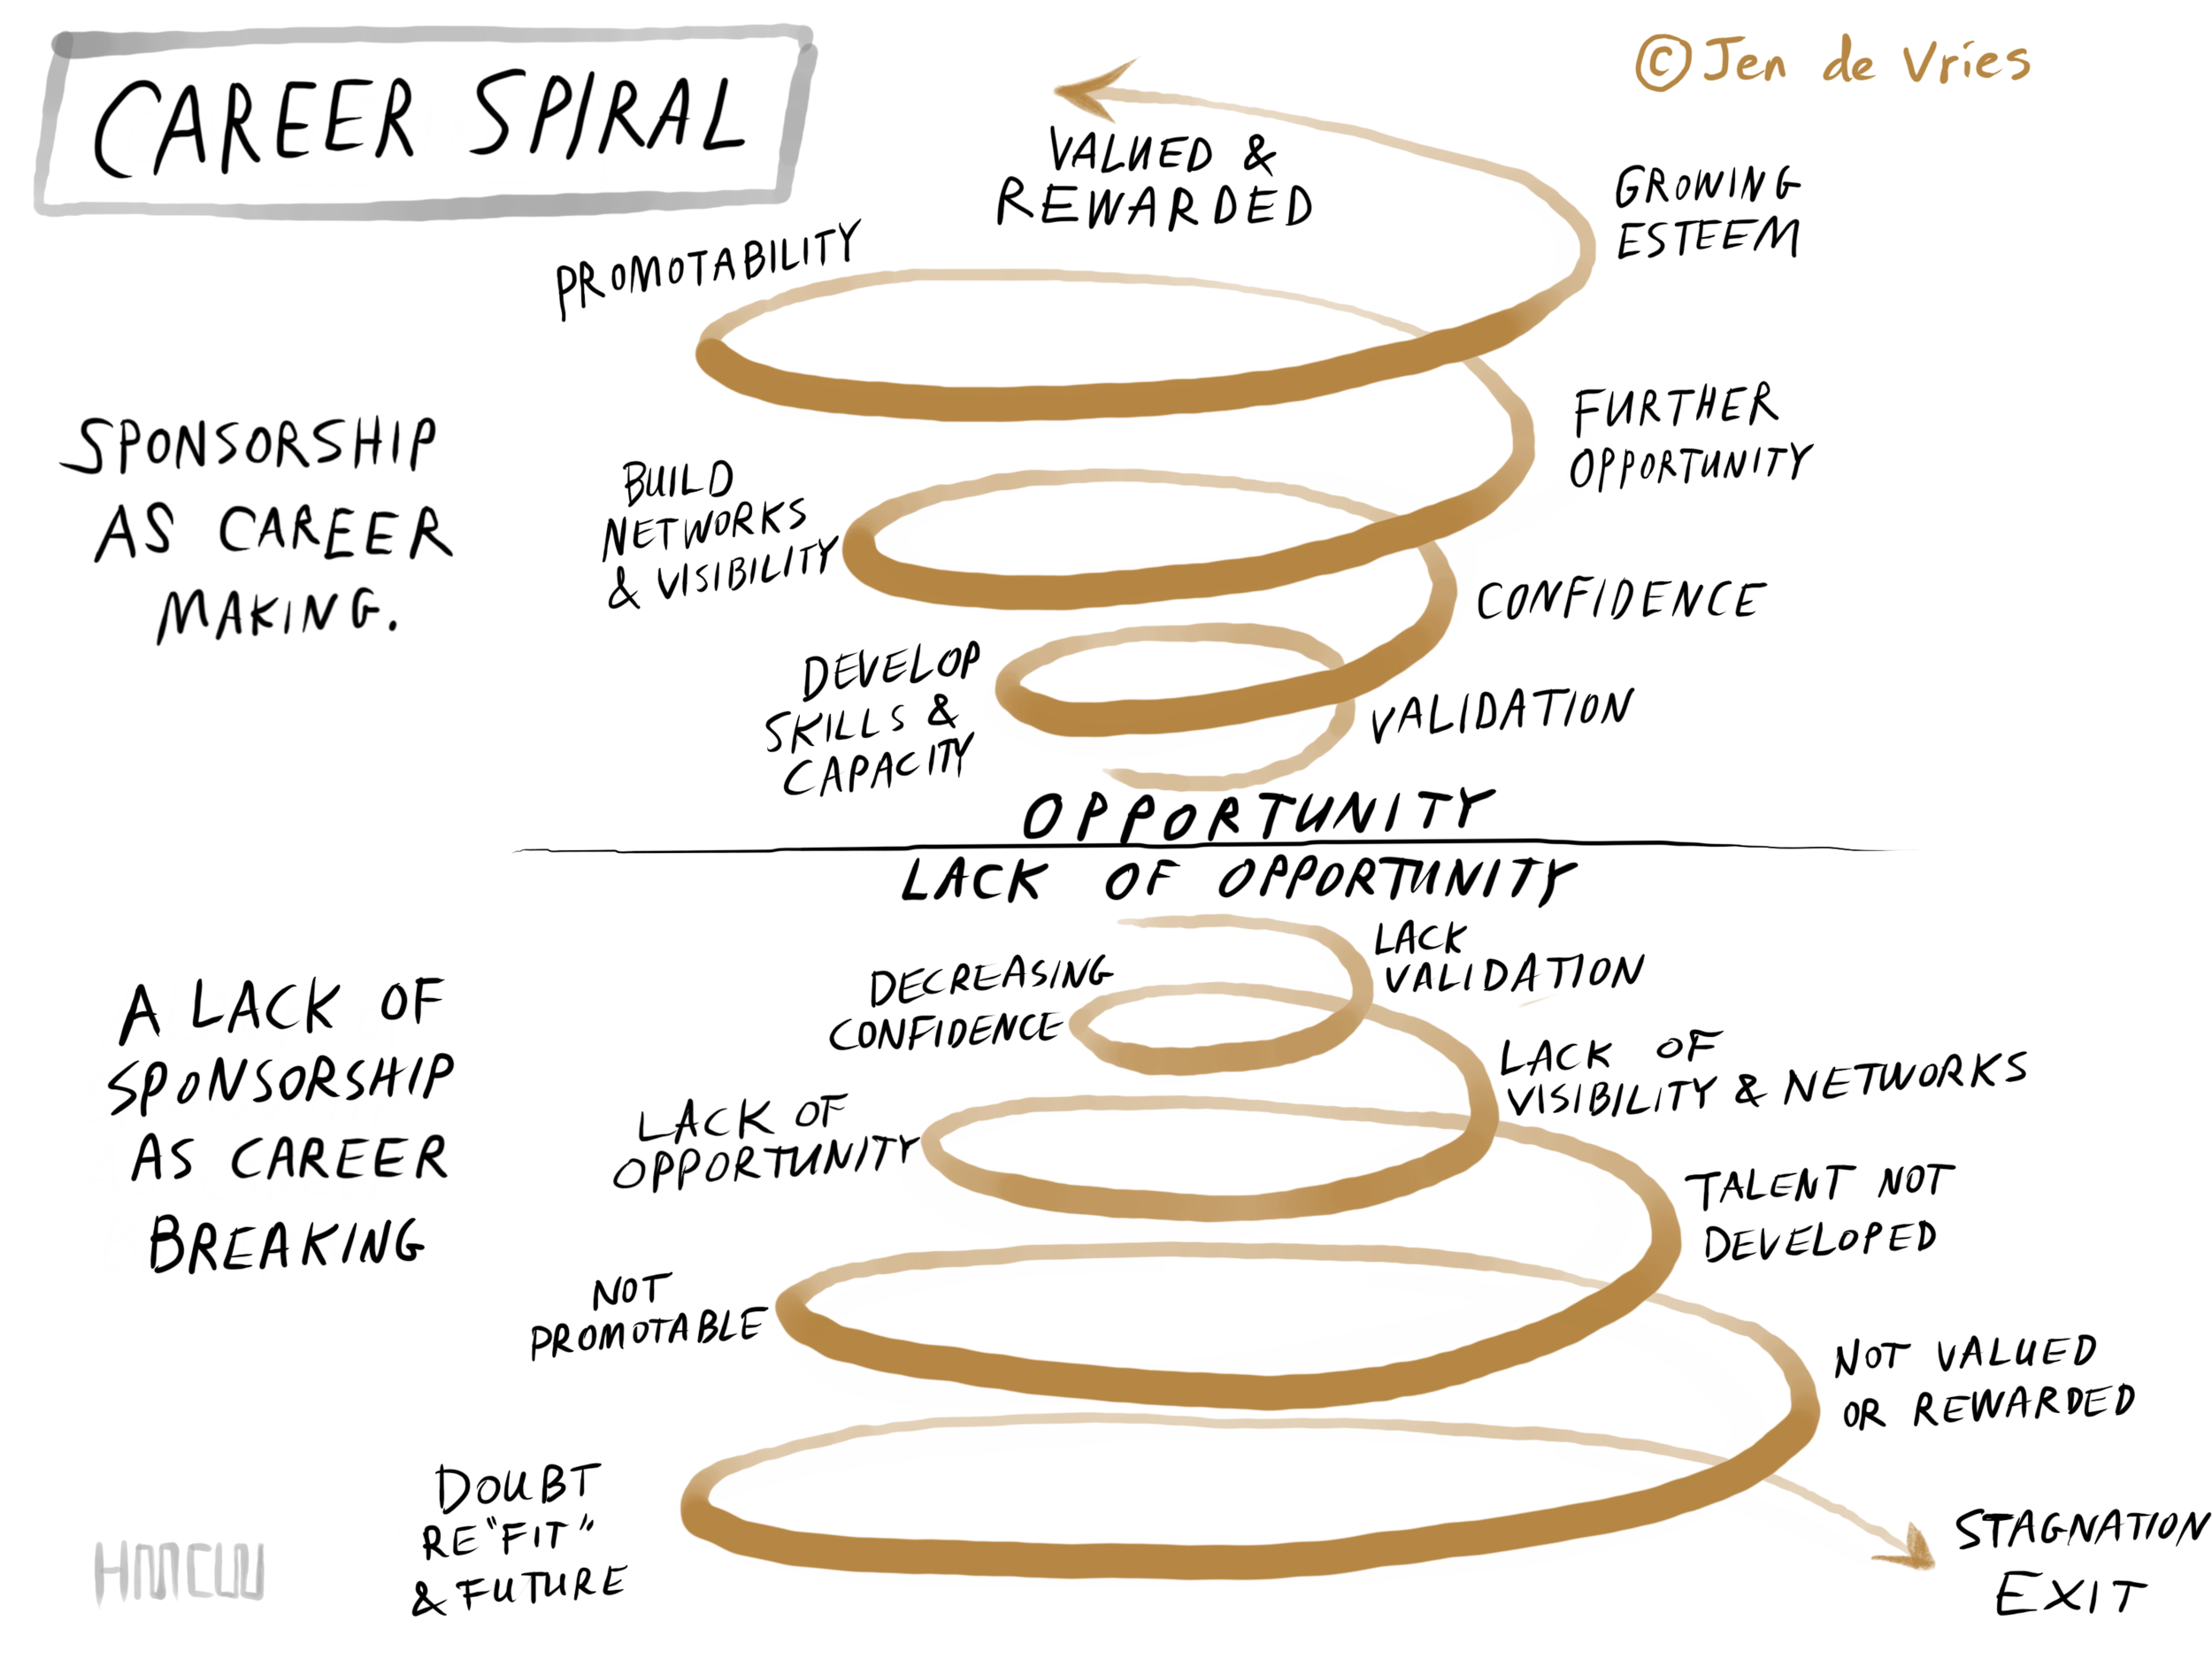 CAREER SPIRAL
© Jen de Vries
VALUED &
REWARDED
GROWING
ESTEEM
PROMOTABILITY
SPONSORSHIP
AS CAREER
MAKING.
FURTHER
OPPORTUNITY
BUILD
NETWORKS
& VISIBILITY
CONFIDENCE
DEVELOP
SKILLS &
CAPACITY
VALIDATION
OPPORTUNITY
LACK OF OPPORTUNITY
LACK
VALIDATION
DECREASING
CONFIDENCE
A LACK OF
SPONSORSHIP
AS CAREER
BREAKING
LACK OF
VISIBILITY & NETWORKS
LACK OF
OPPORTUNITY
TALENT NOT
DEVELOPED
NOT
PROMOTABLE
NOT VALUED
OR REWARDED
DOUBT
RE "FIT"
& FUTURE
STAGNATION
EXIT
HMCW